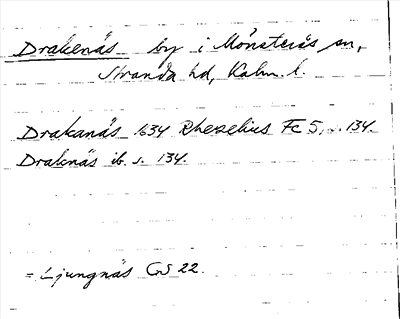 Drakenäs by i Mönsterås sn,
Stranda hd, Kalm. l.
Drakanäs 1634 Rhezelius Fc 5, s. 134.
Draknäs ib. s. 134.
= Ljungnäs GS 22.